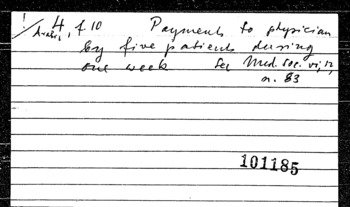 4
Arabic, f 10
Payments to physician
by five patients during
one week See Med. Soc. vi, 12,
n. 83
101185